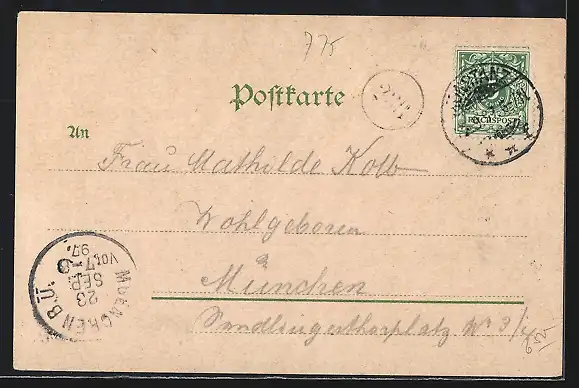 775
Postkarte
KONSTANZ
REICHSPOST
An
Frau Mathilde Kolb
Wohlgeboren
München
Sendlingerthorplatz No 3/
MUENCHEN B.Ü.
23
SEP.
Vor. 7-8
97.